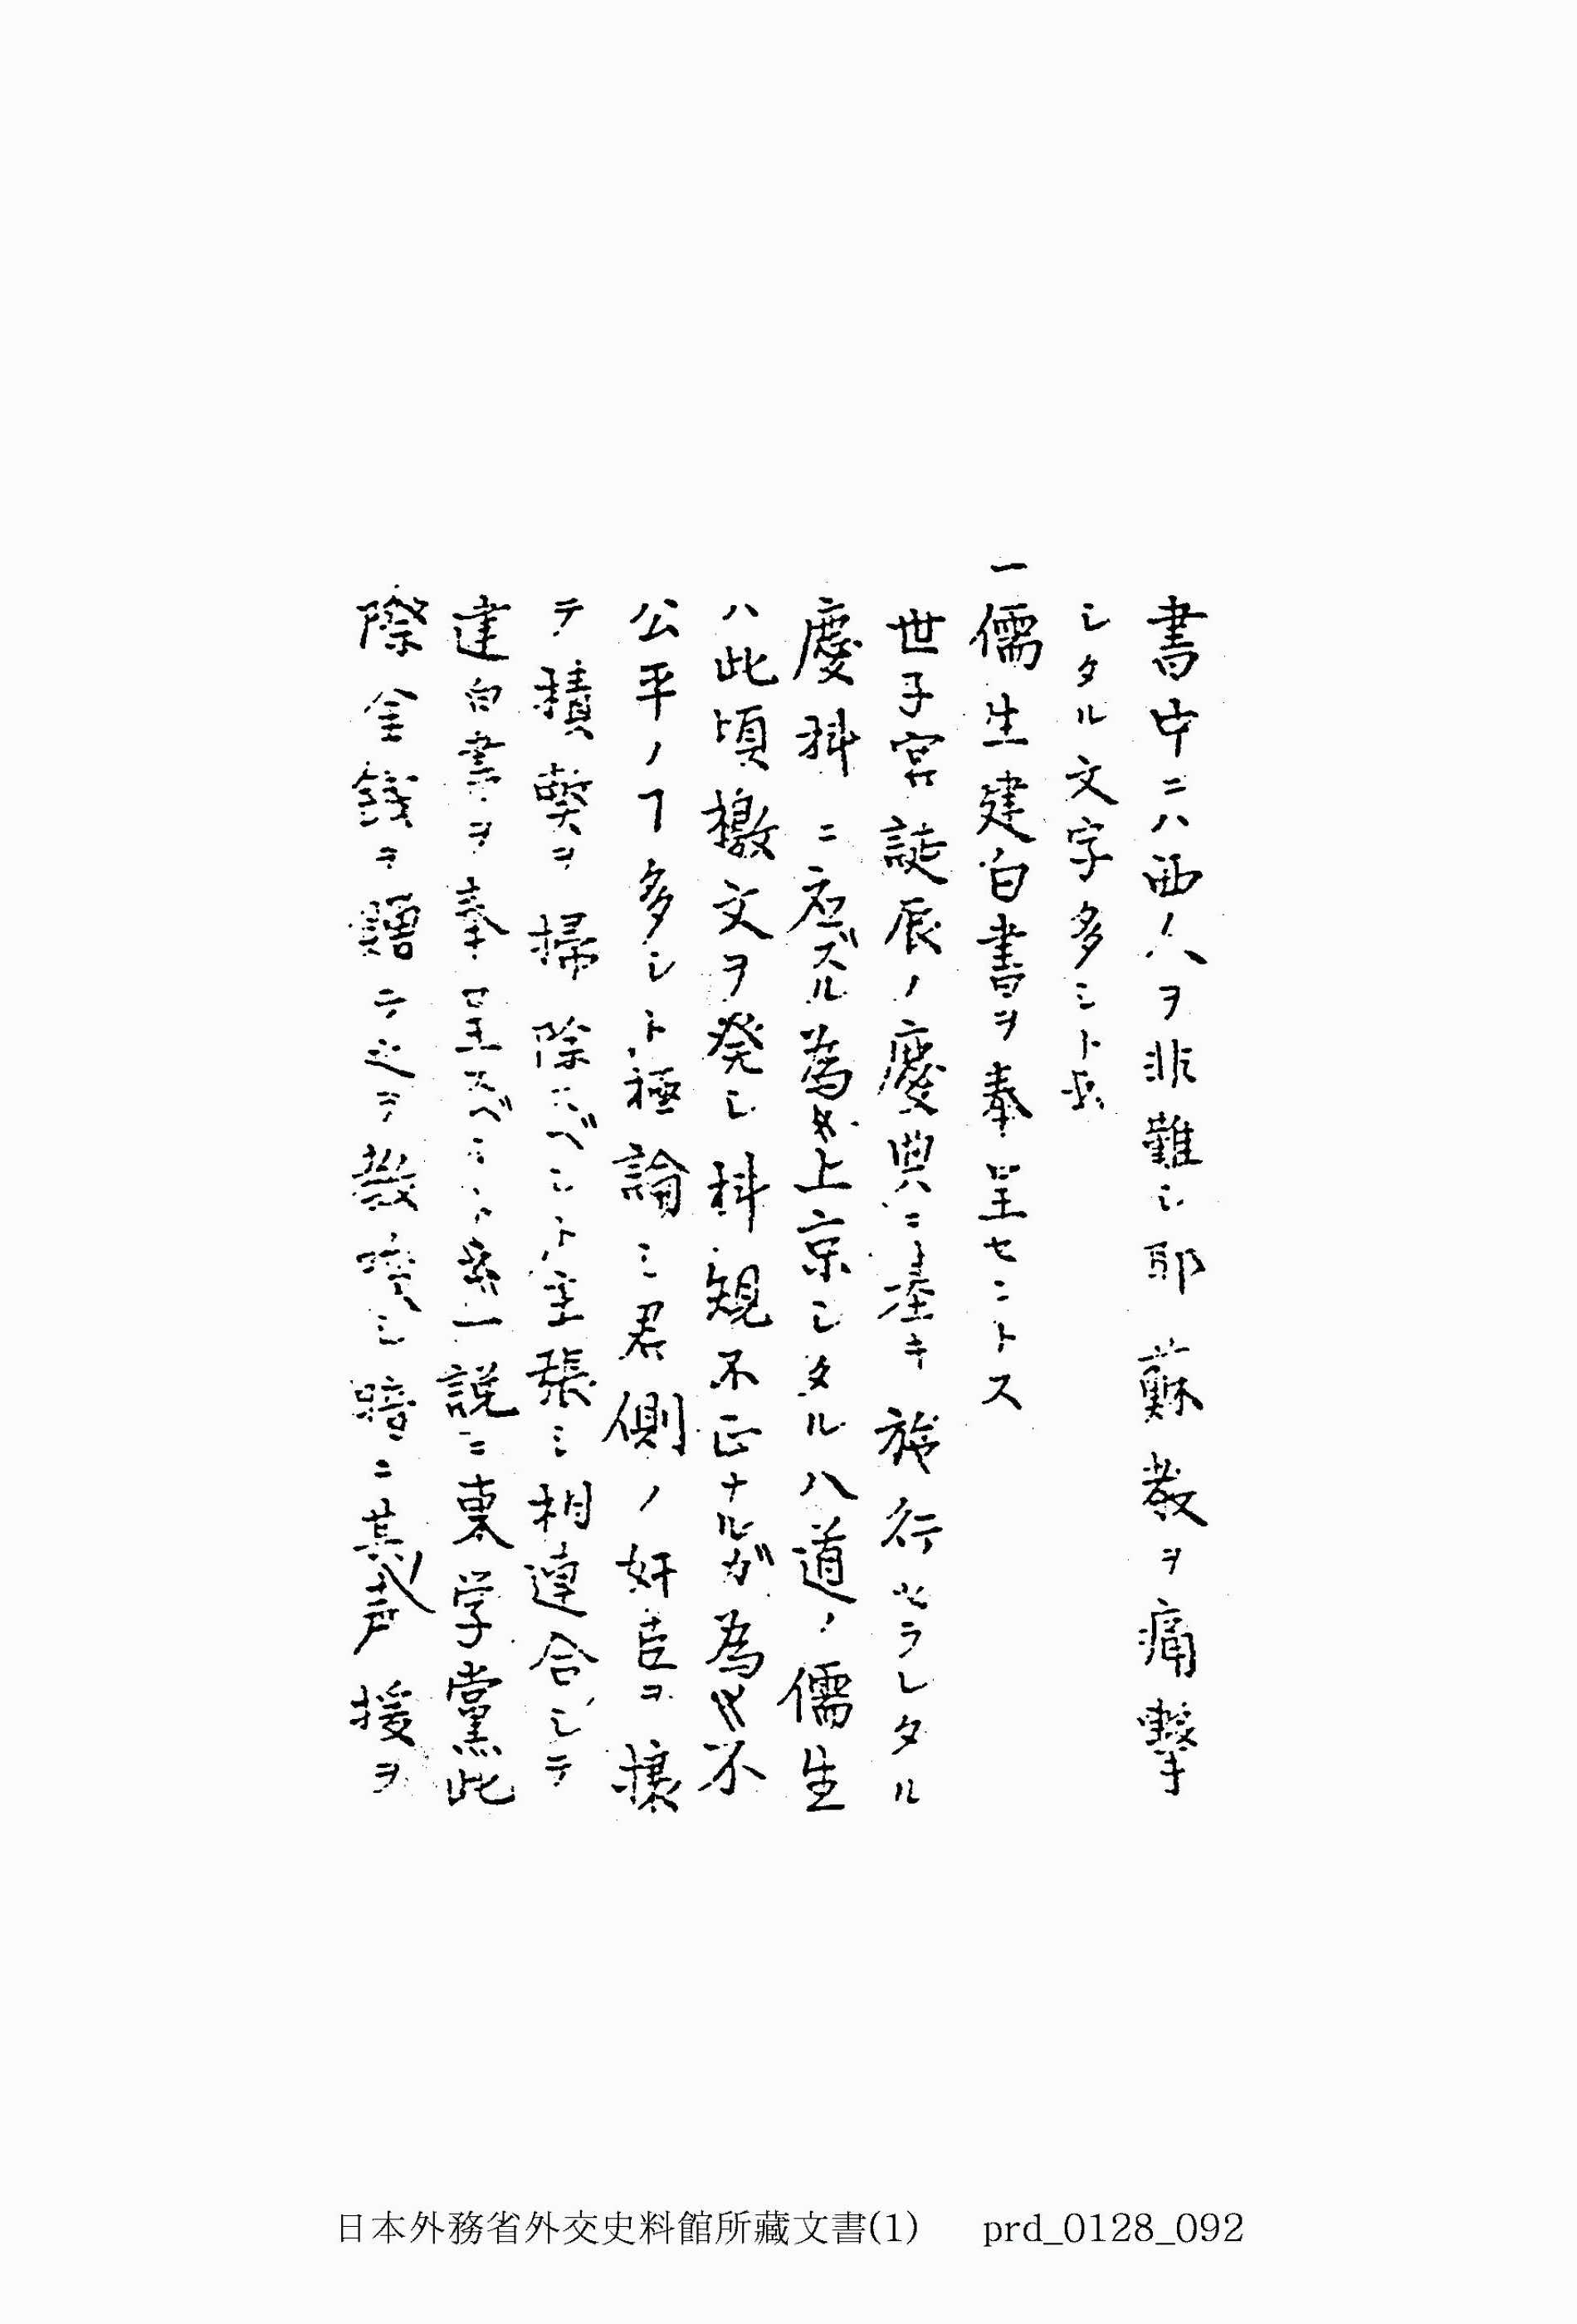 書中ニハ西人ヲ非難シ耶蘇教ヲ痛撃
シタル文字多シト云
一儒生建白書ヲ奉呈セントス
世子宮誕辰ノ慶典ニ基キ施行セラレタル
慶科ニ応ズル為メ上京シタル八道ノ儒生
ハ此頃檄文ヲ発シ科規不正ナルガ為メ不
公平ノヿ多シト極論シ君側ノ奸臣ヲ攘
テ積弊ヲ掃除スベシト主張シ相連合シテ
建白書ヲ奉呈スベシト云一説ニ東学党此
際金銭ヲ贈テ之ヲ教唆シ暗ニ其声援ヲ
日本外務省外交史料館所藏文書(1) prd_0128_092